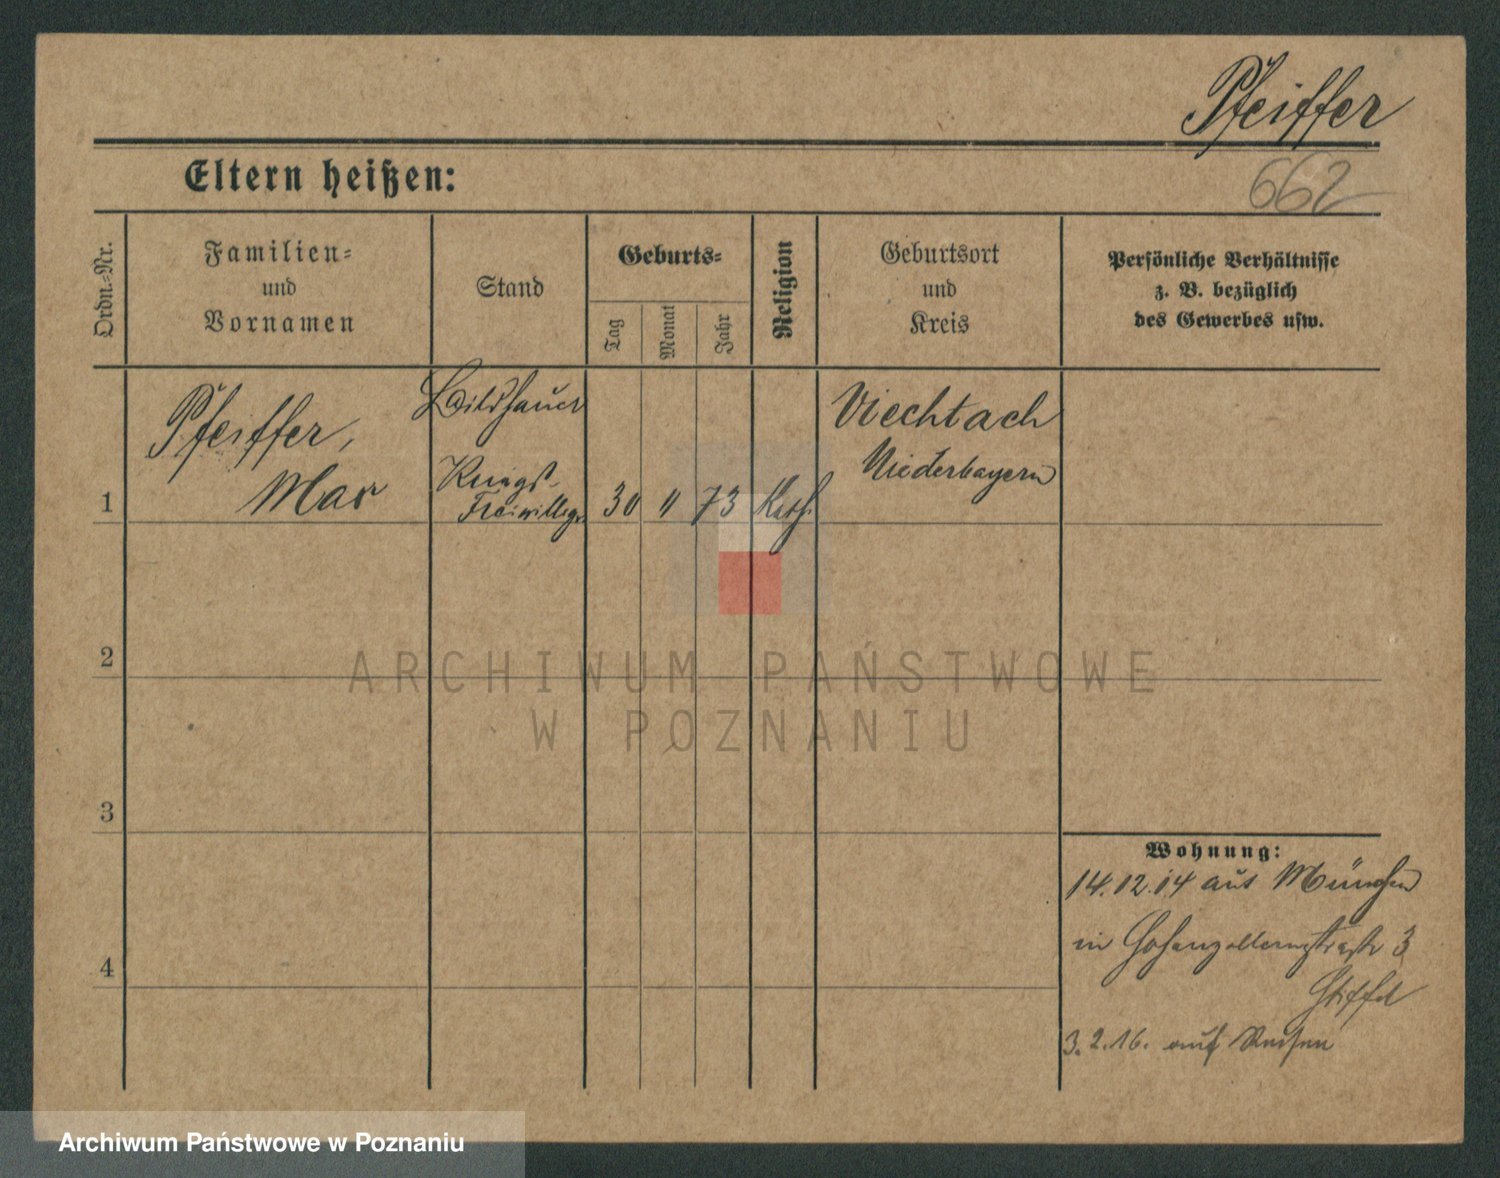 Pfeiffer
662
Eltern heißen:
Ordn.-Nr.
Familien-
und
Vornamen
Stand
Geburts-
Tag
Monat
Jahr
Religion
Geburtsort
und
Kreis
Persönliche Verhältnisse
z. B. bezüglich
des Gewerbes usw.
1
Pfeiffer,
Max
Bildhauer
Kriegs-
Freiwilliger
30
11
73
Kath.
Viechtach
Niederbayern
2
3
4
Wohnung:
14.12.14 aus München
in Hohenzollernstraße 3
3.2.16. auf Reisen
ARCHIWUM PAŃSTWOWE
W POZNANIU
Archiwum Państwowe w Poznaniu